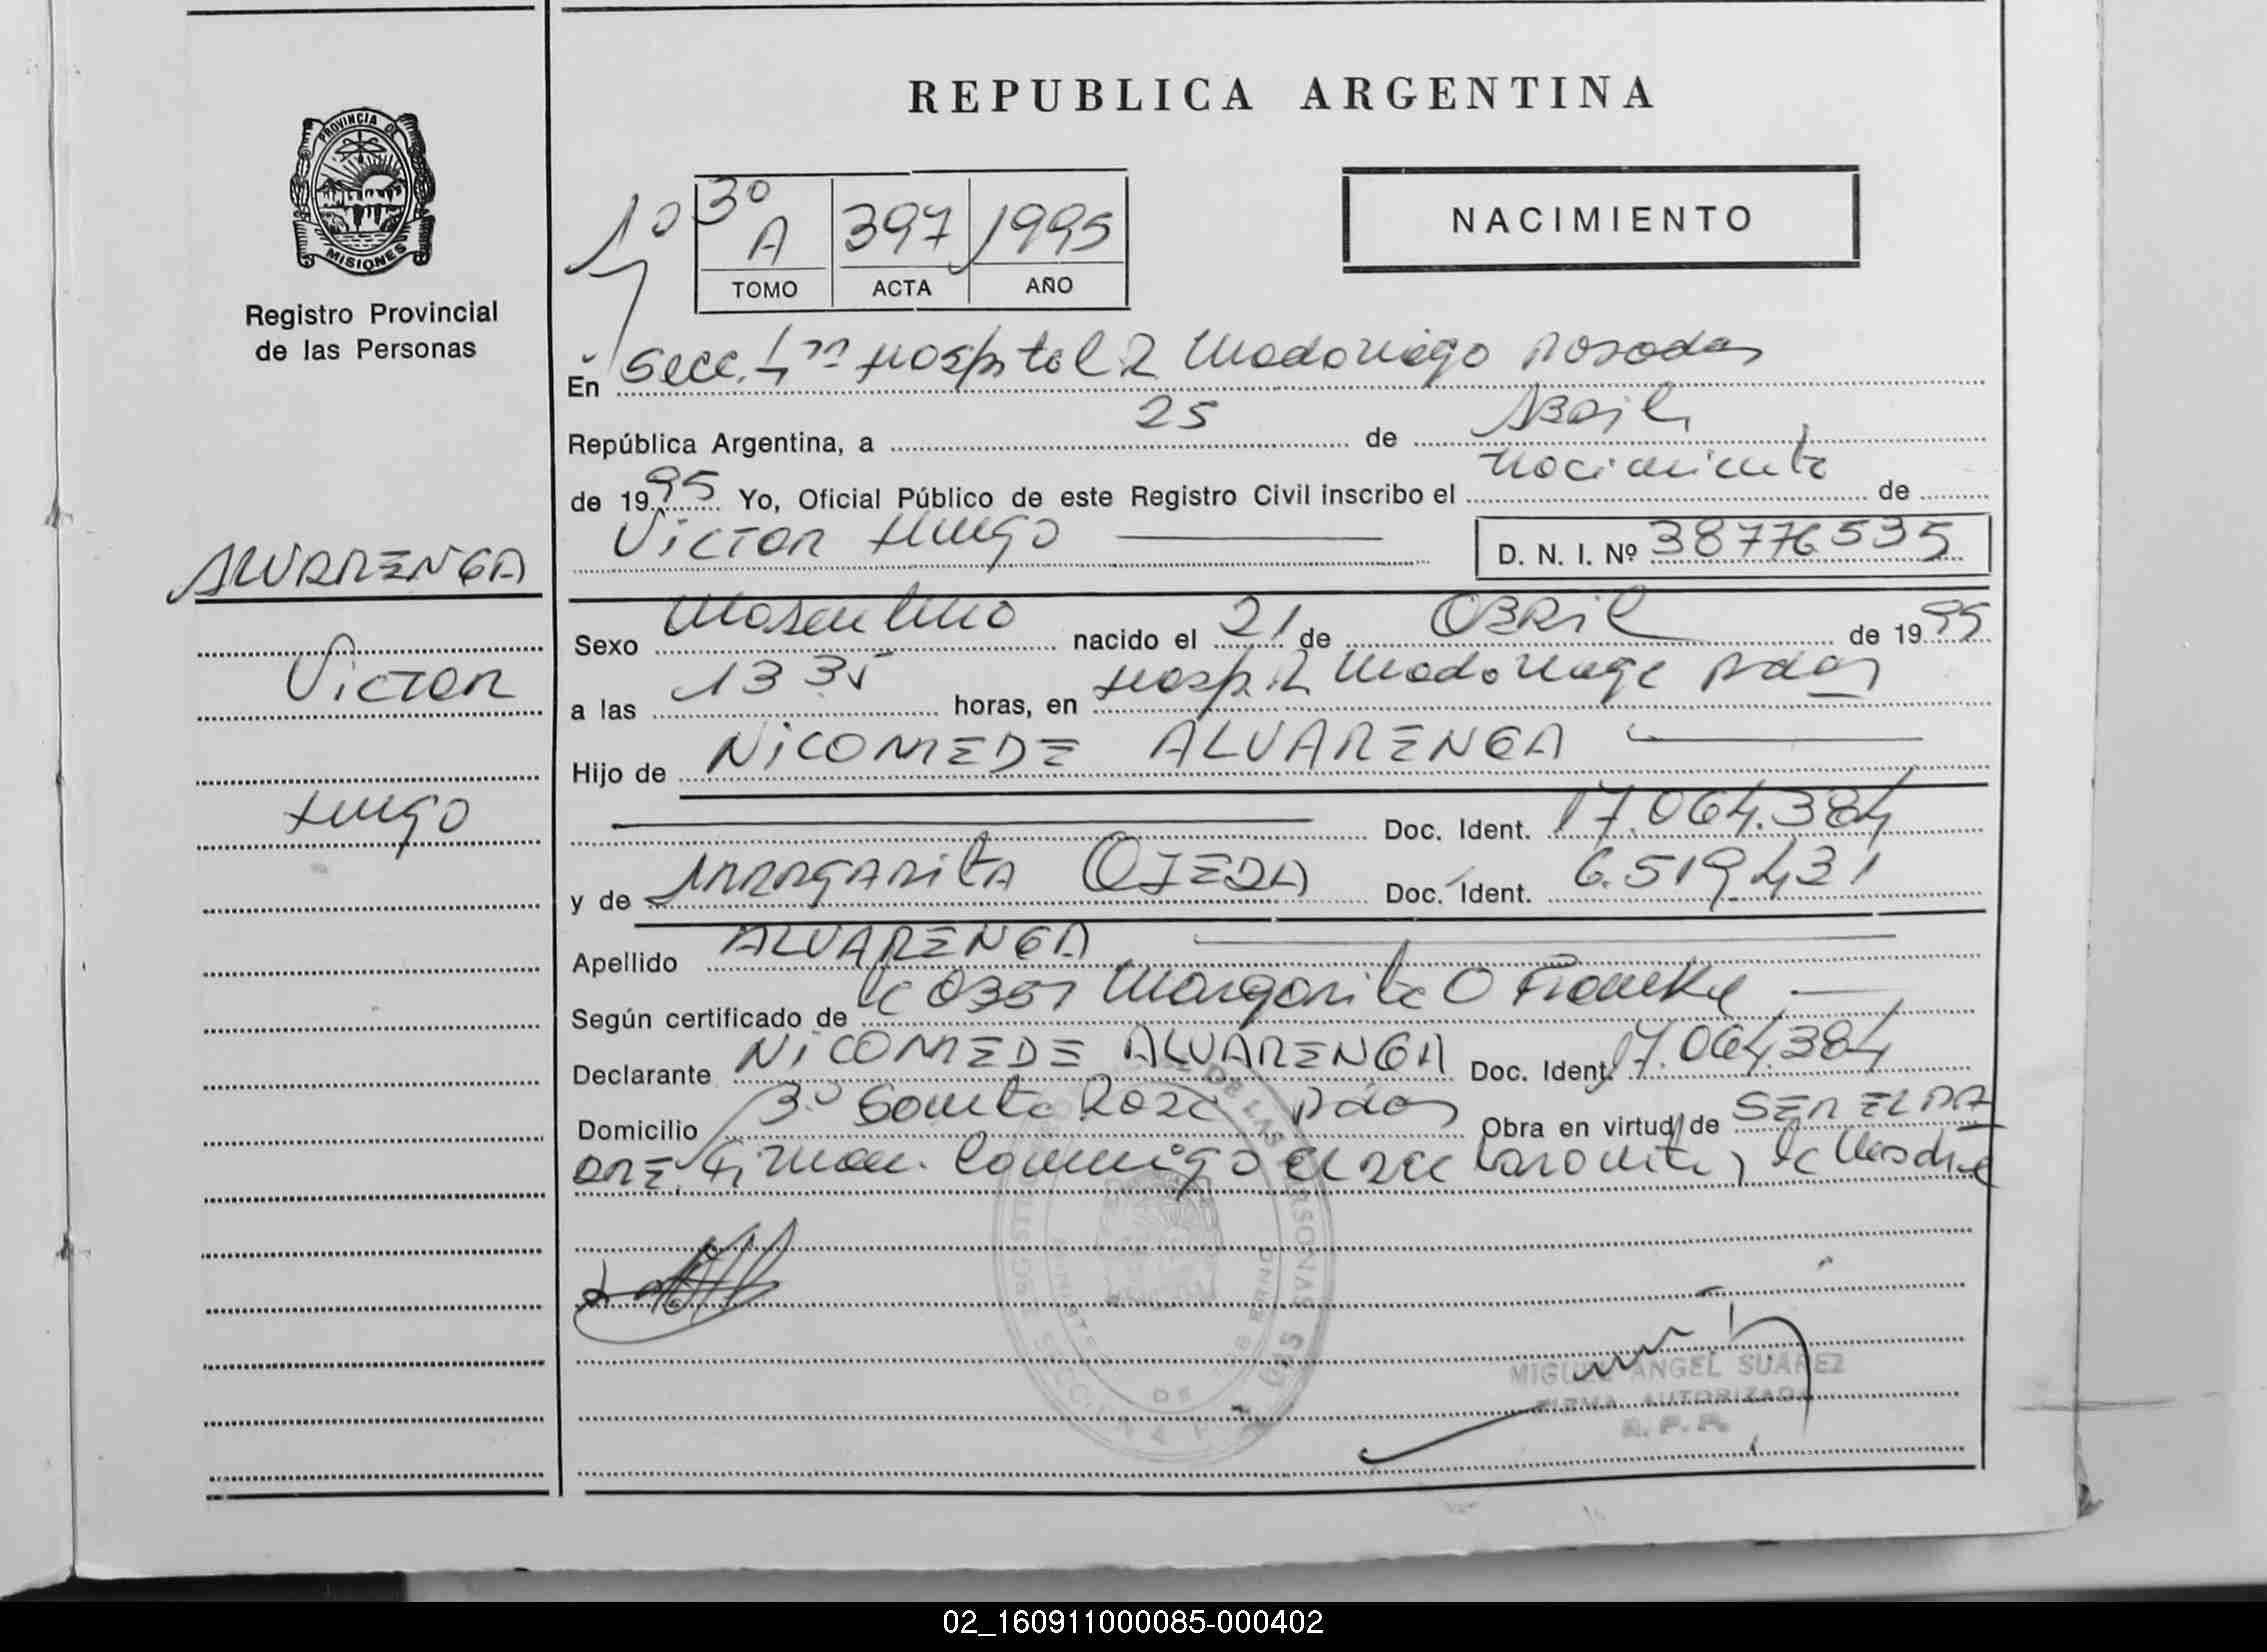 REPUBLICA ARGENTINA
PROVINCIA DE
MISIONES
Registro Provincial
de las Personas
1º
3º
A 397 1995
TOMO ACTA AÑO
NACIMIENTO
En Secc. Hospital R Madariaga Posadas
República Argentina, a 25 de Abril
de 1995 Yo, Oficial Público de este Registro Civil inscribo el nacimiento de
Victor Hugo D. N. I. Nº 38776535
ALVARENGA
Victor
Hugo
Sexo Masculino nacido el 21 de Abril de 1995
a las 13 35 horas, en Hosp. R Madariaga Pdas
Hijo de NICOMEDE ALVARENGA
Doc. Ident. 17.064.384
y de Margarita OJEDA Doc. Ident. 6.519.431
Apellido ALVARENGA
Según certificado de la Obst Margarita O
Declarante NICOMEDE ALVARENGA Doc. Ident. 17.064.384
Domicilio Santa Rosa Pdas Obra en virtud de SER EL PA
DRE. Firman Conmigo el declarante y la Madre
DE LAS PERSONAS
MIGUEL ANGEL SUAREZ
FIRMA AUTORIZADA
R. P. P.
02_160911000085-000402